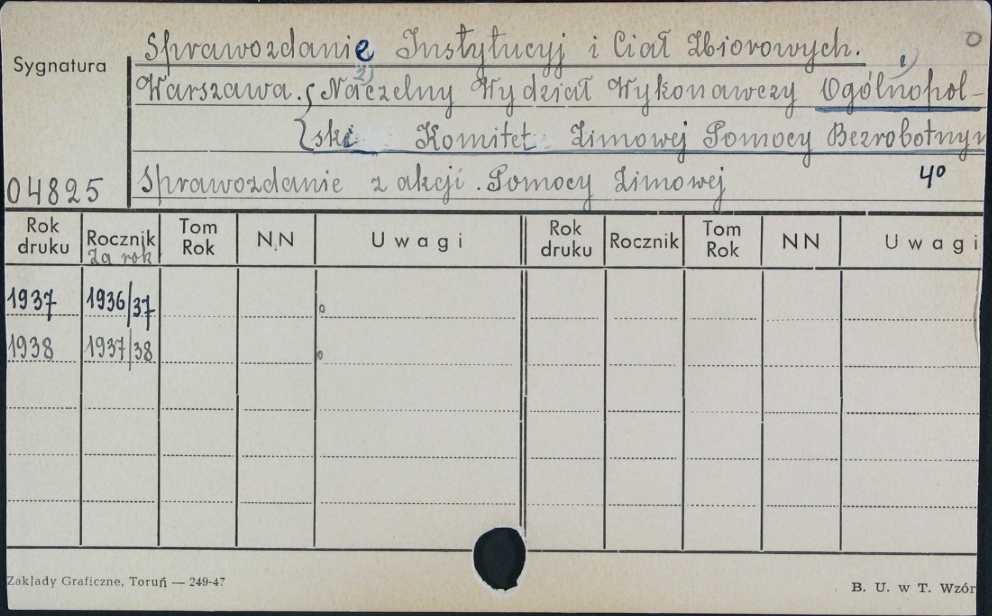 Sprawozdanie Instytucyj i Ciał Zbiorowych. 0
Sygnatura
Warszawa. Naczelny Wydział Wykonawczy Ogólnopol-
ski Komitet Zimowej Pomocy Bezrobotnym
04825 Sprawozdanie z akcji Pomocy Zimowej 4º
Rok druku Rocznik za rok Tom Rok N.N Uwagi Rok druku Rocznik Tom Rok NN Uwagi
1937 1936/37
1938 1937/38
Zakłady Graficzne, Toruń — 249-47 B. U. w T. Wzór